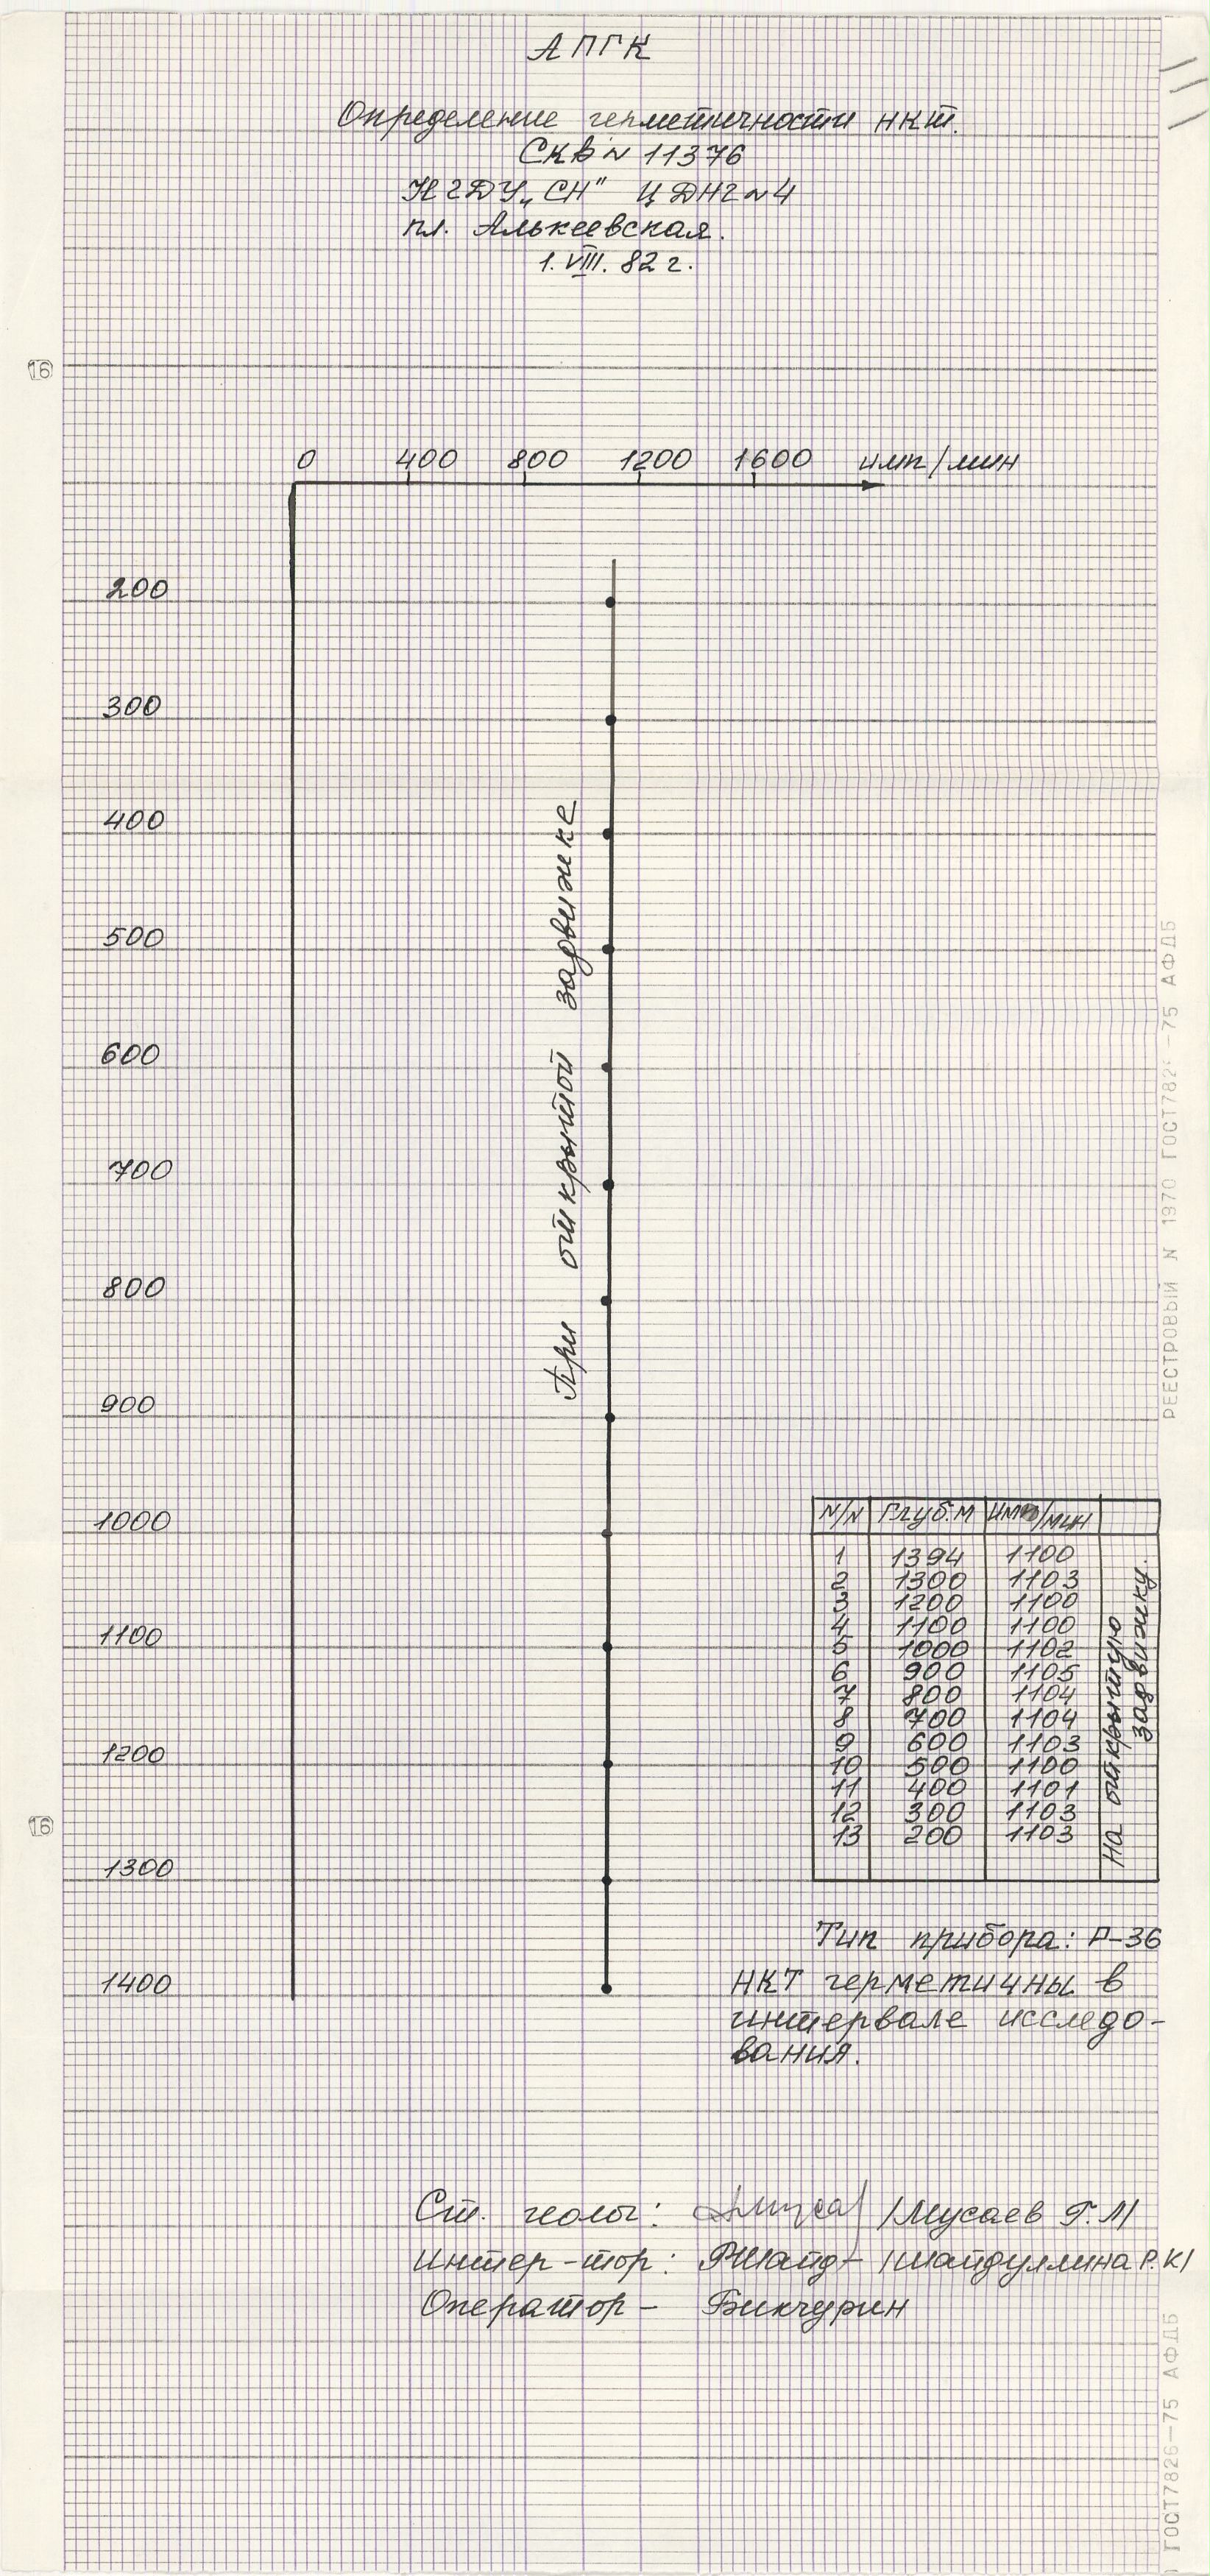 АПГК
Определение герметичности НКТ.
СКВ N 11376
НГДУ „СН" ЦДНГ N 4
пл. Алькеевская.
1. VIII. 82 г.
16
0 400 800 1200 1600 имп/мин
200
300
400
500
600
700
800
900
1000
1100
1200
1300
1400
При открытой задвижке
N/N Глуб.м имп/мин
1 1394 1100
2 1300 1103
3 1200 1100
4 1100 1100
5 1000 1102
6 900 1105
7 800 1104
8 700 1104
9 600 1103
10 500 1100
11 400 1101
12 300 1103
13 200 1103
На открытую
задвижку.
16
Тип прибора: Р-36
НКТ герметичны в
интервале исследо-
вания.
Ст. геолог: /Мусаев Г.М/
Интер-тор: РШайд- /Шайдуллина Р.К/
Оператор - Бикчурин
РЕЕСТРОВЫЙ N 1970 ГОСТ782 -75 АФДБ
ГОСТ7826-75 АФДБ